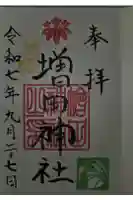 奉拝
増田神社
令和七年九月二十七日